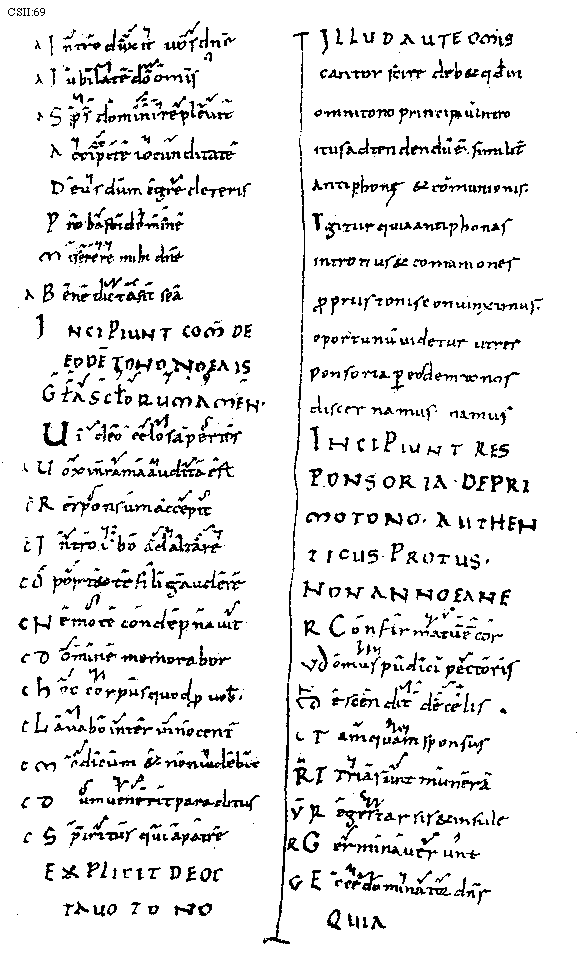 CSII:69
A Introduxit vos dñs
A Iubilate dõ omnis
A Sp̄s domini replevit
Accipite iocunditatē
Deus dum egredereris
Pño
Miserere mihi dñe
A Benedicta sit
INCIPIUNT COM DE
EODĒ TONO NOEAIS
GLĀ SCLORUM AMEN.
Video celos apertos
Vox in rama audita est
C Responsum accepit
C Introibo ad altare
C Oportet te fili gaudere
C Nemo te condempnavit
C Domine memorabor
C Hoc corpus quod ꝓ vob̄
C Lavabo inter innocent
C Modicum & non videbit
C Dum venerit paraclitus
C Spiritus qui a patre
EXPLICIT DE OC
TAUO TONO
ILLUD AUTE OM̄IS
cantor scire deb& qđ in
omni tono principa
itus adtendendū ē. similit̄
antiphonę & cōmunionis.
Igitur quia antiphonas
introitus & comuniones
ꝓpriis tonis conuinximus.
oportunū uidetur ut res
ponsoria ꝑ eodem tonos
discernamus. namus
INCIPIUNT RES
PONSORIA. DE PRI
MO TONO. AUTHEN
TICUS. PROTUS.
NONANNOEANE
R Confirmatū ē cor
V Domus pudici pectoris
Descendit de celis
Tamquam sponsus
R Tria sunt munera
V Reges tharsis & insule
R Germinaver̄unt
G E dominator dñs
QUIA